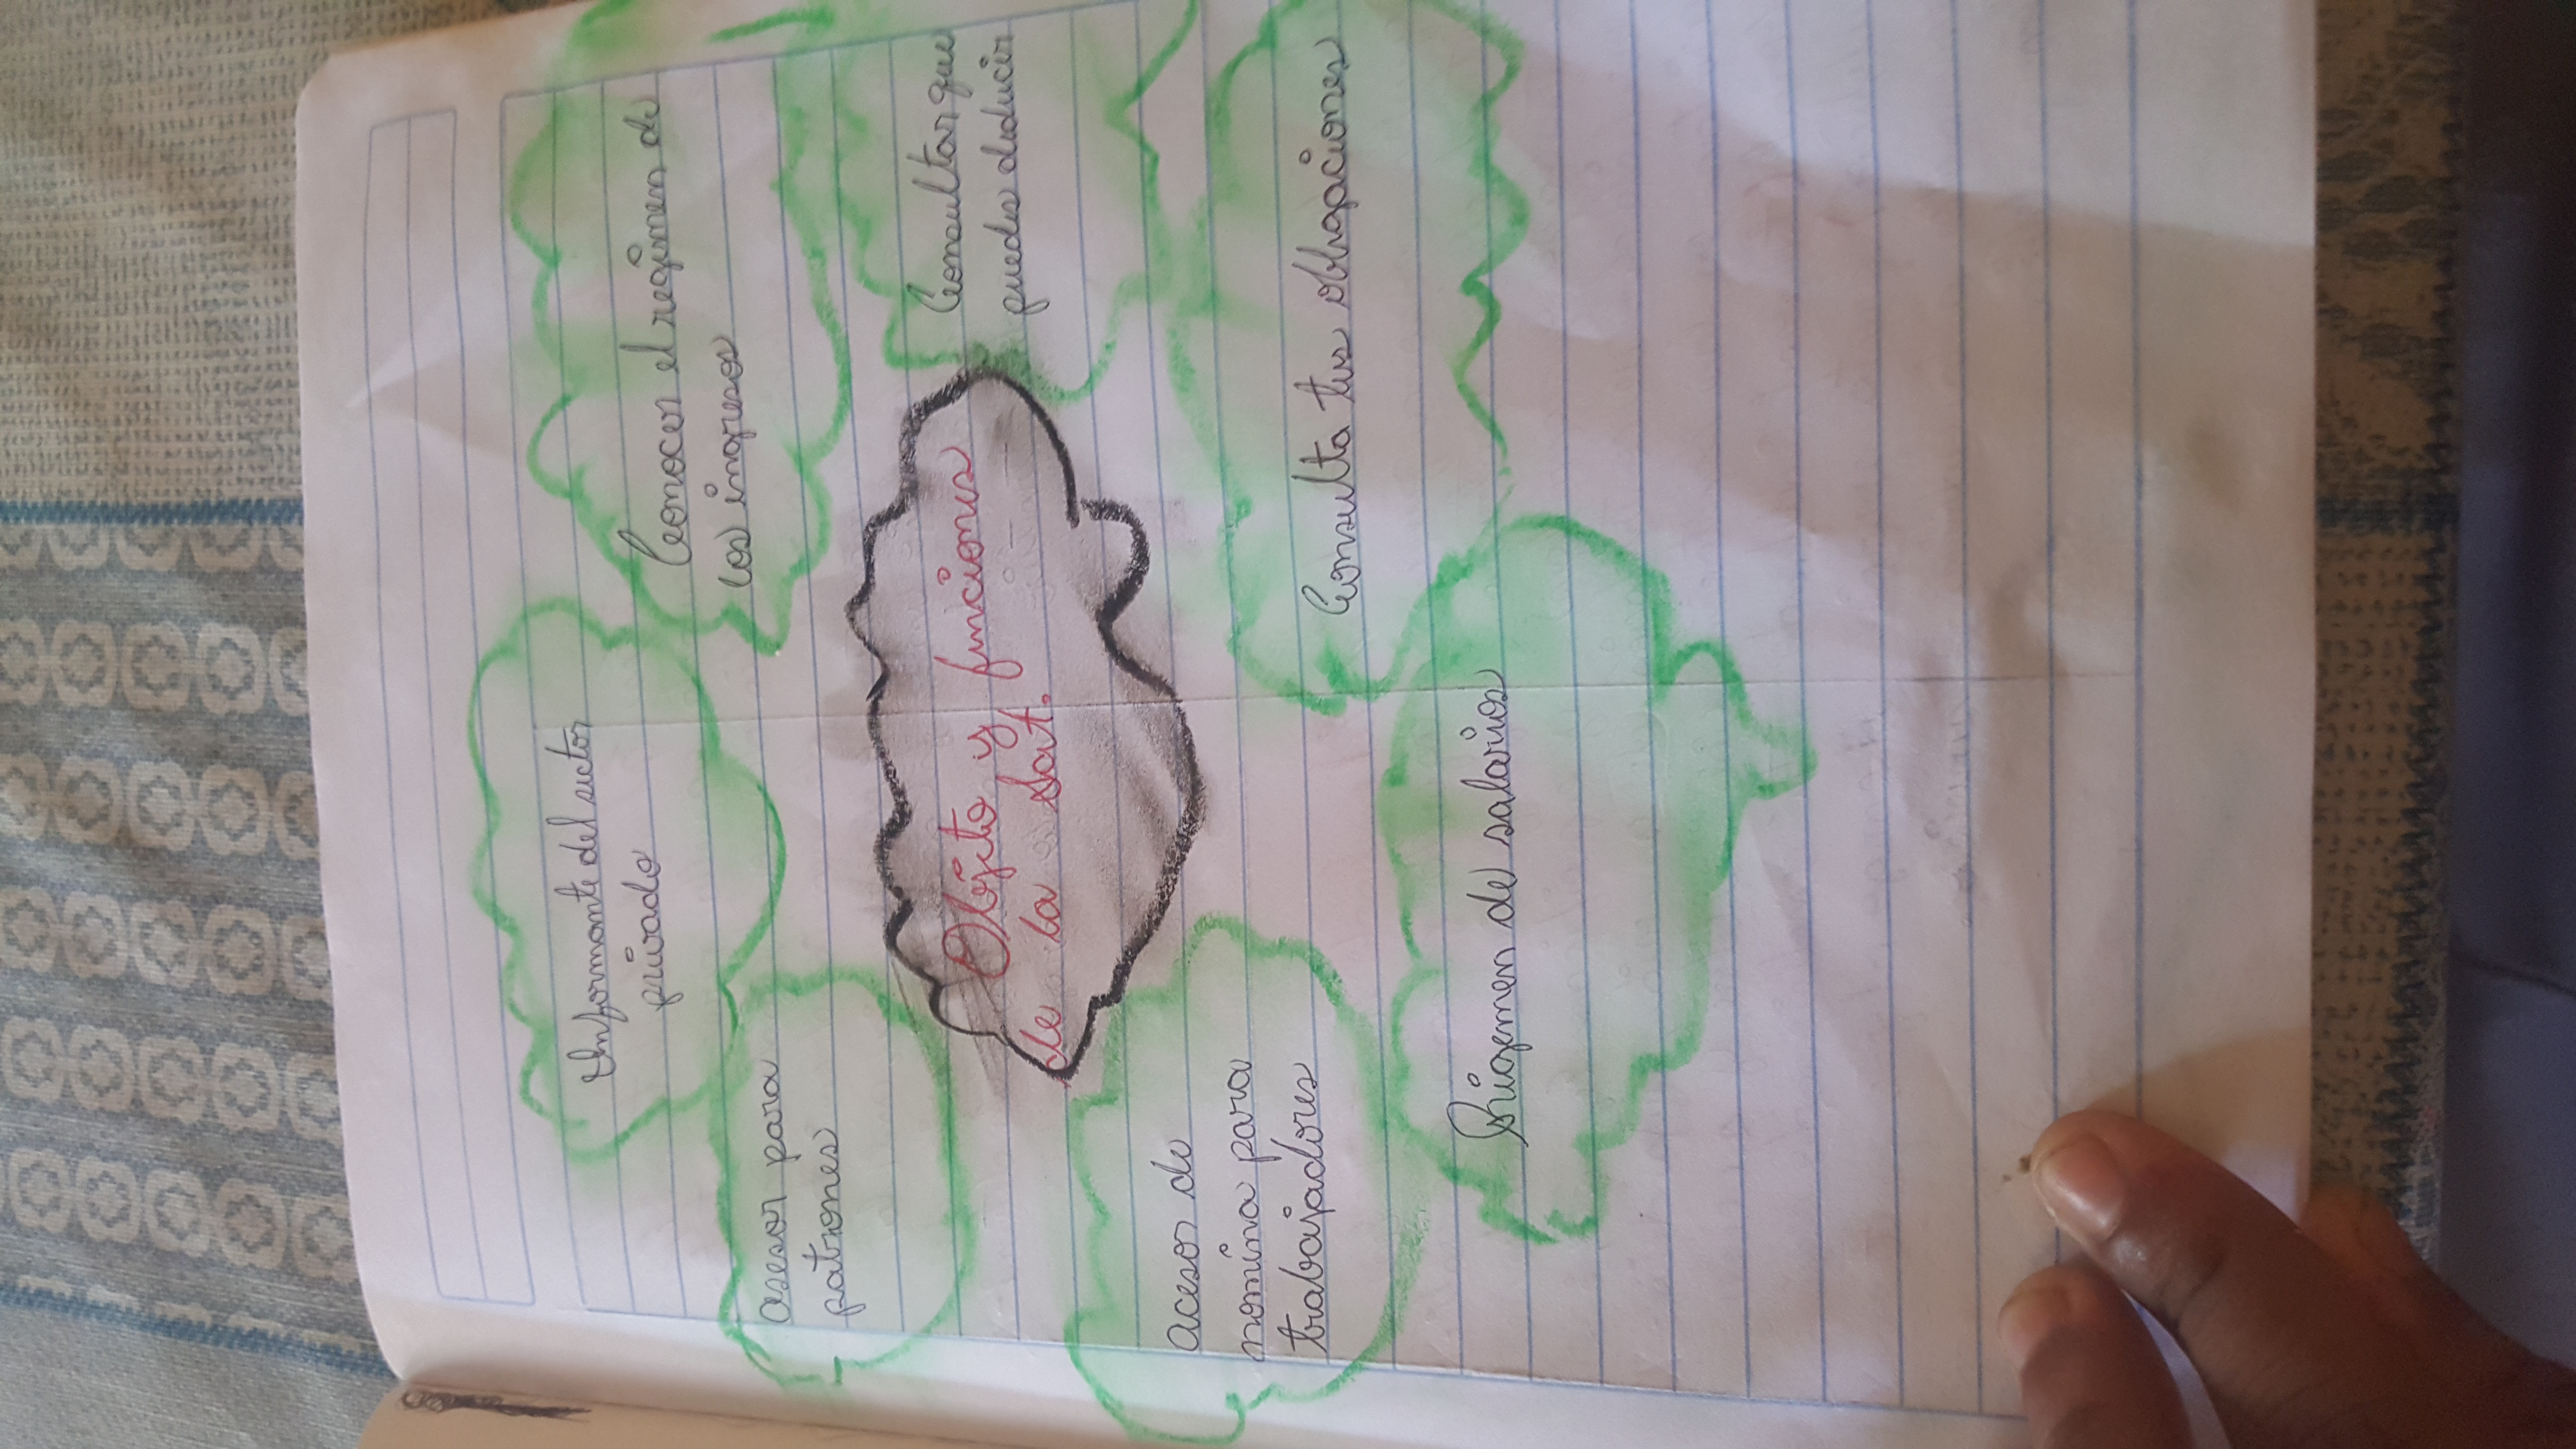 Informante del sector
privado
Conocer el regimen de
los ingresos
asesor para
patrones
Objeto y funciones
de la Sat.
Consultar que
puedes deducir
acesor de
nomina para
trabajadores
Consulta tus obligaciones
Rriogemen de salarios